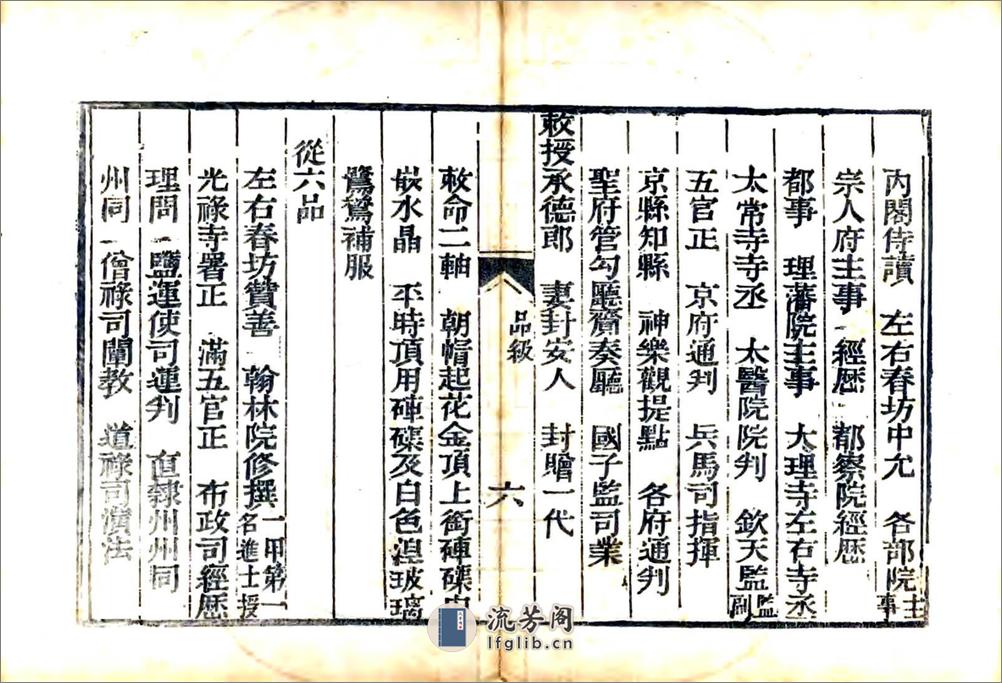 內閣侍讀　左右春坊中允　各部院主事
宗人府主事　經歷　都察院經歷
都事　理藩院主事　大理寺左右寺丞
太常寺寺丞　太醫院院判　欽天監監副
五官正　京府通判　兵馬司指揮
京縣知縣　神樂觀提點　各府通判
聖府管勾廳齎奏廳　國子監司業
敕授承德郎　妻封安人　封贈一代
品級　六
敕命二軸　朝帽起花金頂上銜硨磲中
嵌水晶　平時頂用硨磲及白色湼玻璃
鷺鶿補服
從六品
左右春坊贊善　翰林院修撰一甲第一名進士授
光祿寺署正　滿五官正　布政司經歷
理問　鹽運使司運判　直隸州州同
州同　僧祿司闡教　道祿司演法
流芳阁
lfglib.cn